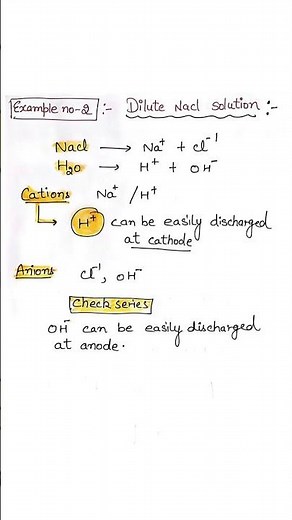 Example no-2 :- Dilute Nacl solution :-
Nacl → Na⁺ + cl⁻¹
H₂O → H⁺ + OH⁻
Cations Na⁺ / H⁺
→ H⁺ can be easily discharged
at cathode
Anions cl⁻¹, OH⁻
check series
OH⁻ can be easily discharged
at anode.